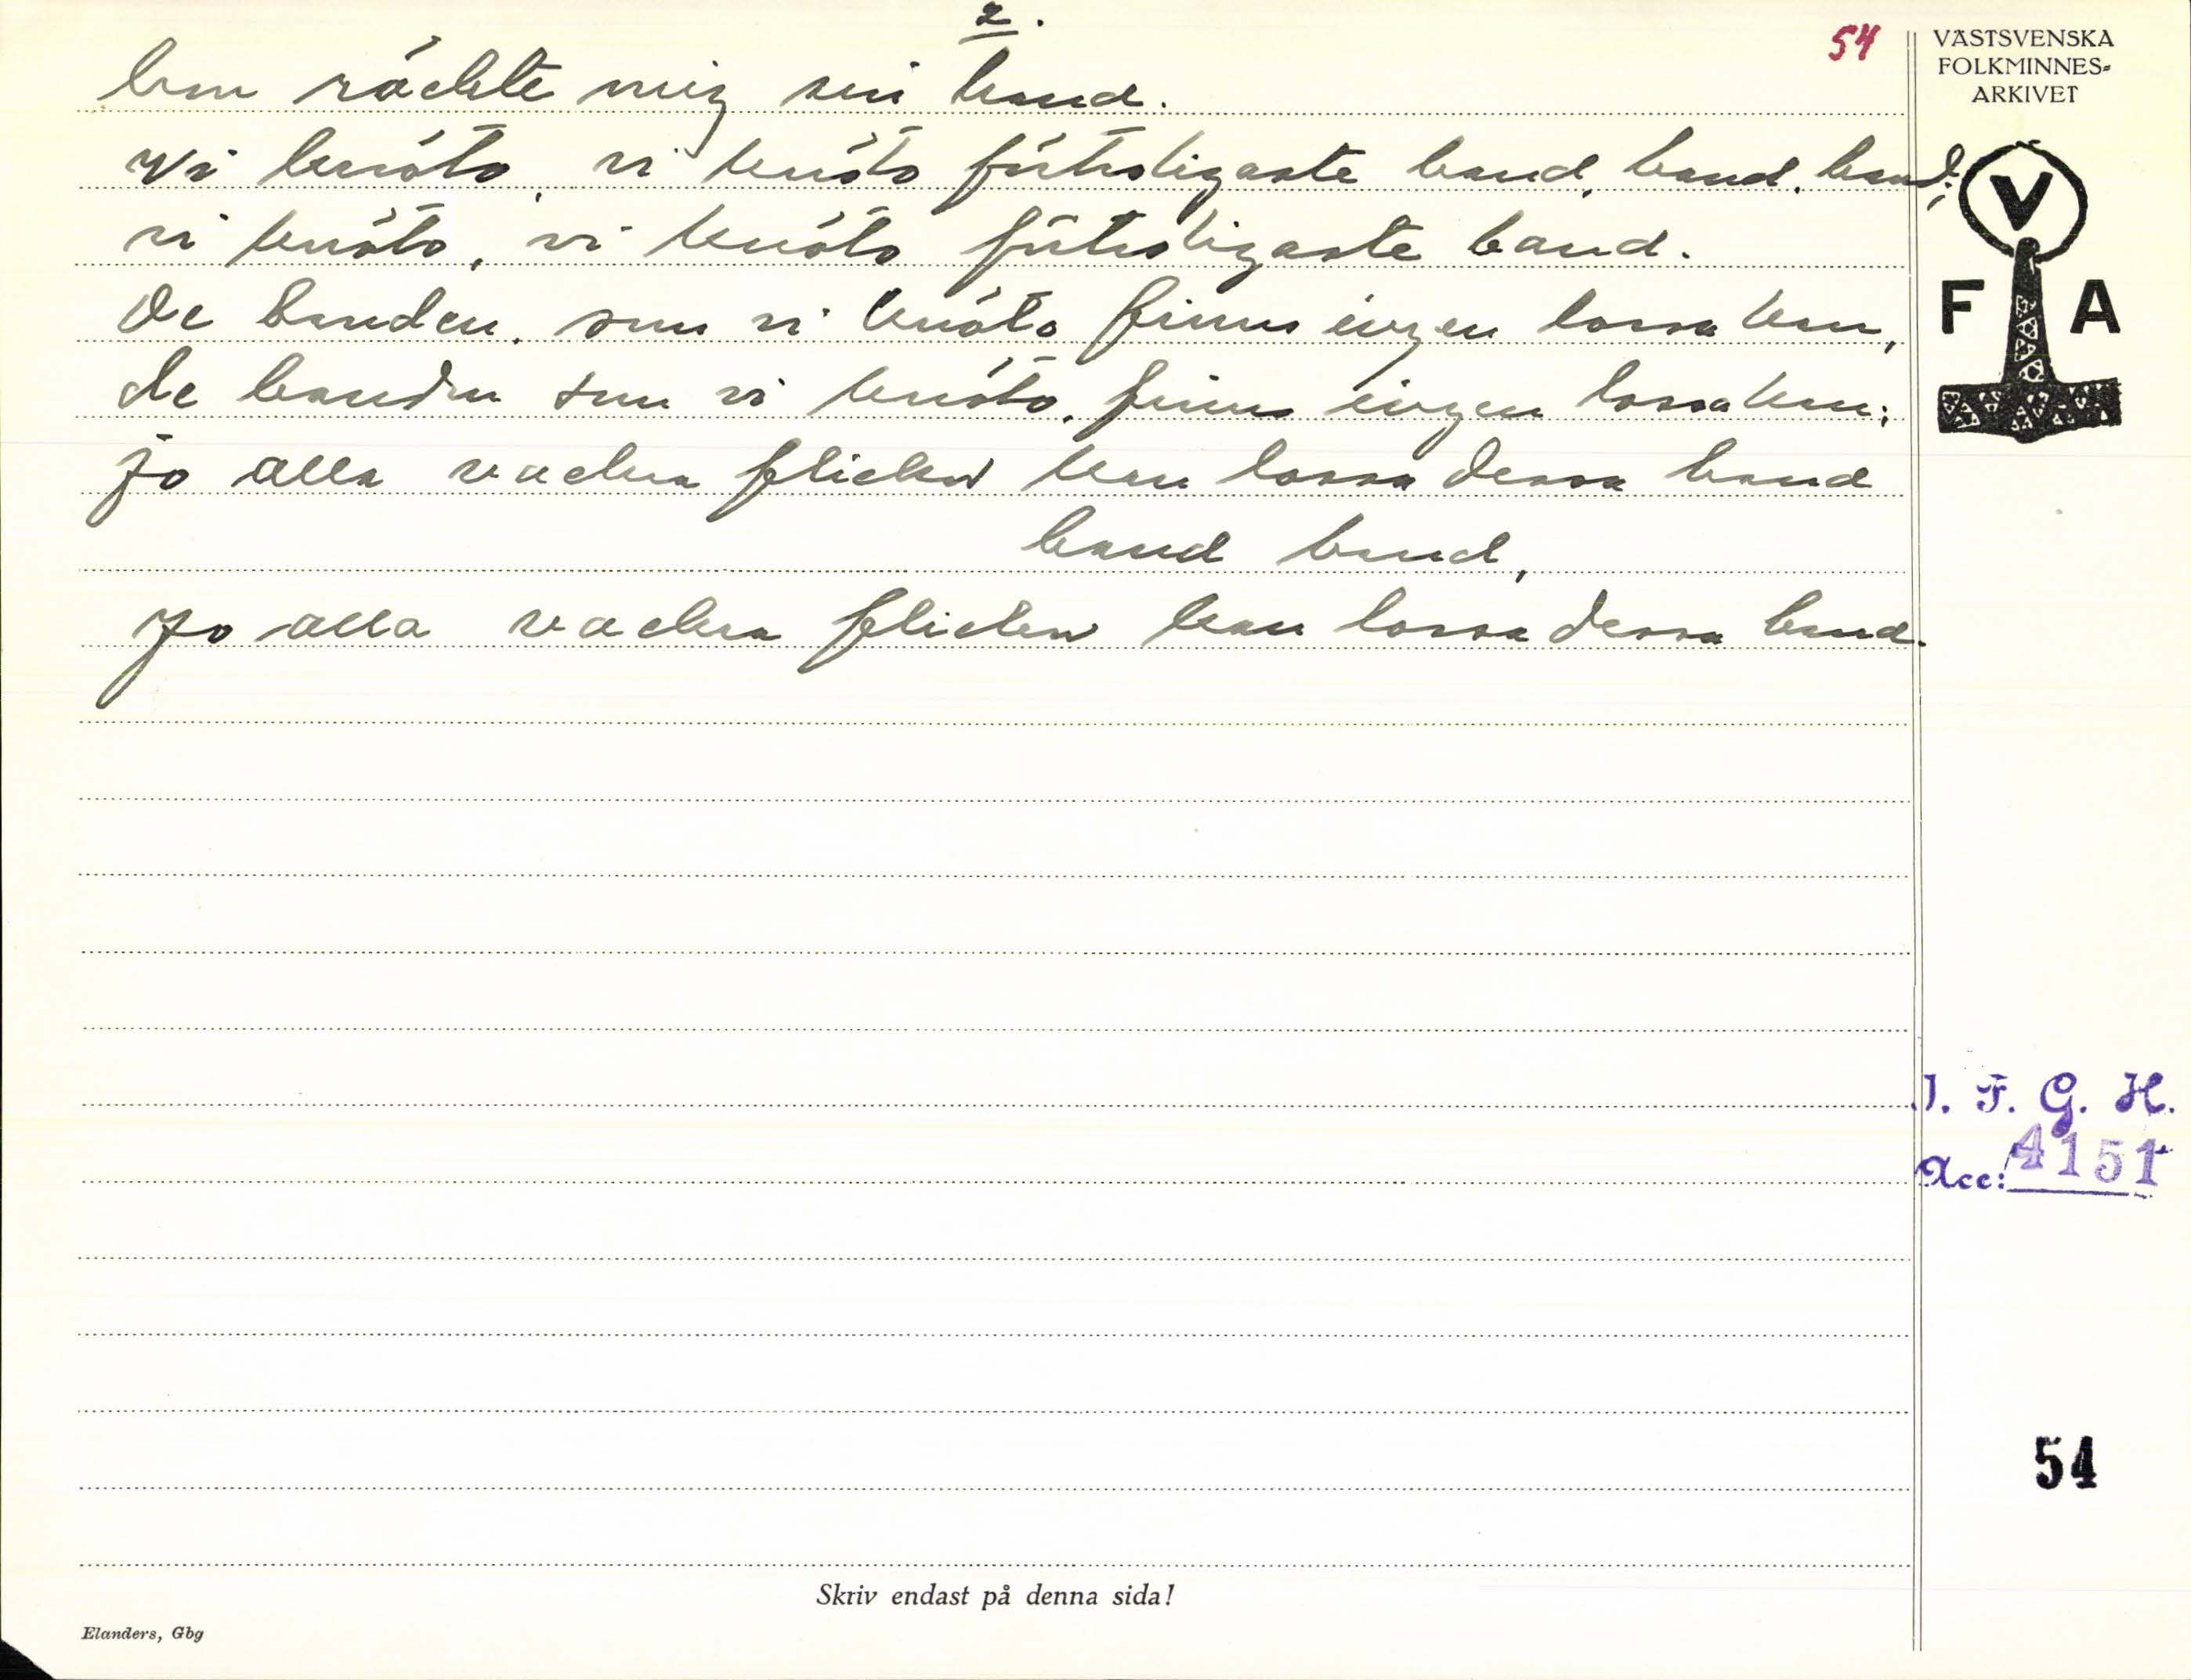 2.
54
han räckte mig sin hand.
Vi knöto, vi knöto förtroligaste band, band, band;
vi knöto, vi knöto förtroligaste band.
De banden, som vi knöto finns ingen lossa kan,
de banden som vi knöto, finns ingen lossa kan;
Jo alla vackra flickor kan lossa dessa band
band band,
Jo alla vackra flickor kan lossa dessa band.
VÄSTSVENSKA
FOLKMINNES-
ARKIVET
V
F A
I. F. G. H.
Acc: 4151
54
Skriv endast på denna sida!
Elanders, Gbg